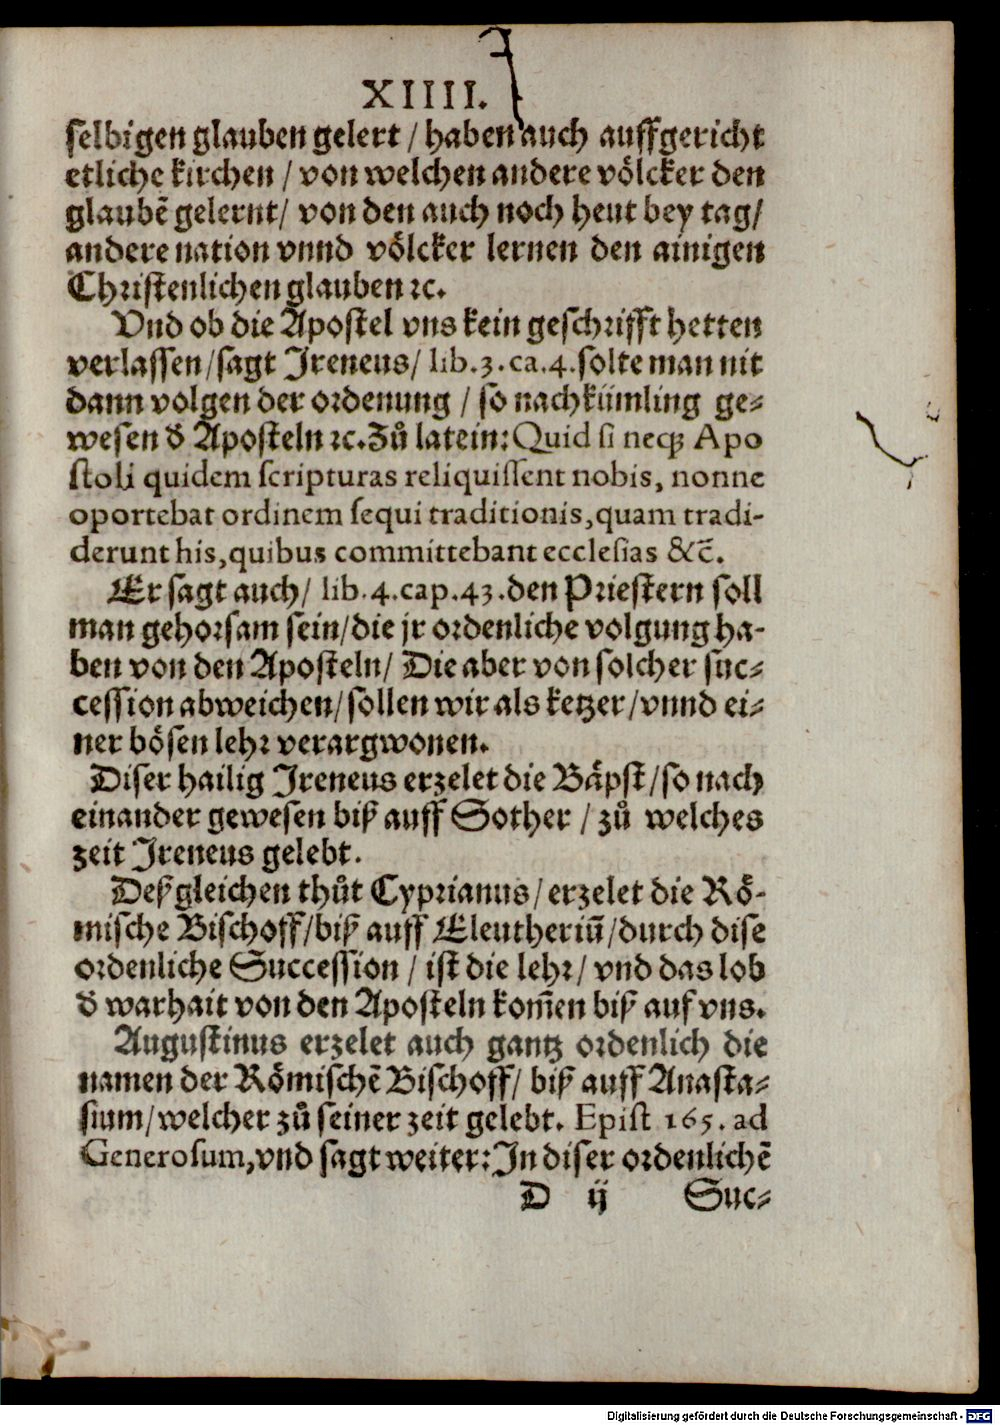 XIIII.
selbigen glauben gelert / haben auch auffgericht
etliche kirchen / von welchen andere völcker den
glaubē gelernt/ von den auch noch heut bey tag/
andere nation vnnd völcker lernen den ainigen
Christenlichen glauben ꝛc.
Vnd ob die Apostel vns kein geschrifft hetten
verlassen/sagt Ireneus/ lib.3.ca.4.solte man nit
dann volgen der ordenung / so nachkümling ge-
wesen đ Aposteln ꝛc. Zů latein: Quid si neqꝫ Apo
stoli quidem scripturas reliquissent nobis, nonne
oportebat ordinem sequi traditionis, quam tradi-
derunt his, quibus committebant ecclesias &c̄.
Er sagt auch/ lib.4.cap.43.den Priestern soll
man gehorsam sein/die jr ordenliche volgung ha-
ben von den Aposteln/ Die aber von solcher suc-
cession abweichen/sollen wir als ketzer/vnnd ei-
ner bösen lehr verargwonen.
Diser hailig Ireneus erzelet die Bäpst/so nach
einander gewesen biß auff Sother / zů welches
zeit Ireneus gelebt.
Deßgleichen thůt Cyprianus/erzelet die Rö-
mische Bischoff/biß auff Eleutheriū/durch dise
ordenliche Succession / ist die lehr/ vnd das lob
đ warhait von den Aposteln kom̄en biß auf vns.
Augustinus erzelet auch gantz ordenlich die
namen der Römischē Bischoff/ biß auff Anasta-
sium/welcher zů seiner zeit gelebt. Epist 165. ad
Generosum, vnd sagt weiter: In diser ordenlichē
D ij Suc-
Digitalisierung gefördert durch die Deutsche Forschungsgemeinschaft - DFG